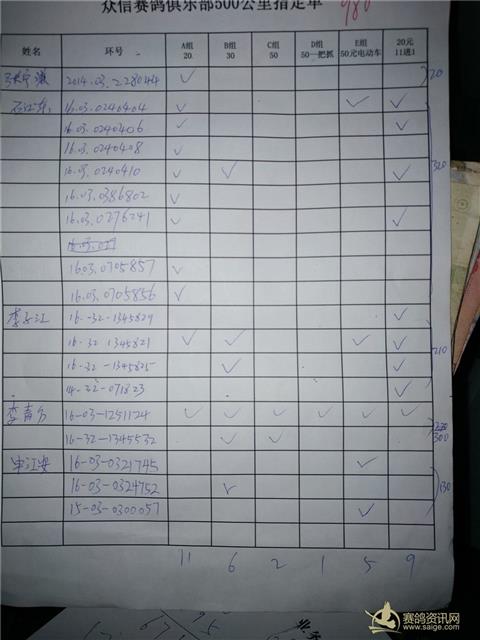 众信赛鸽俱乐部500公里指定单 980
姓名 环号 A组 20. B组 30 C组 50 D组 50一把抓 E组 50元电动车 20元 11进1
2014.03.228044 ✓ 20
石江东 16.03.0240404 ✓ ✓ ✓
16.03.0240406 ✓ ✓
16.03.0240408 ✓
16.03.0240410 ✓ ✓ ✓ 320
16.03.0386802 ✓
16.03.0276241 ✓ ✓
16.03.0705857 ✓
16.03.0705856 ✓
李子江 16-32-1345829 ✓
16-32 1345821 ✓ ✓ ✓ ✓ 210
16-32-1345825 ✓ ✓
14-32-071823 ✓
李青乡 16-03-1251124 ✓ ✓ ✓ ✓ ✓ ✓
16-32-1345532 ✓ ✓ 300
申江安 16-03-0321745 ✓
16-03-0324752 ✓ 130
15-03-0300057 ✓
11 6 2 1 5 9
赛鸽资讯网
www.saige.com